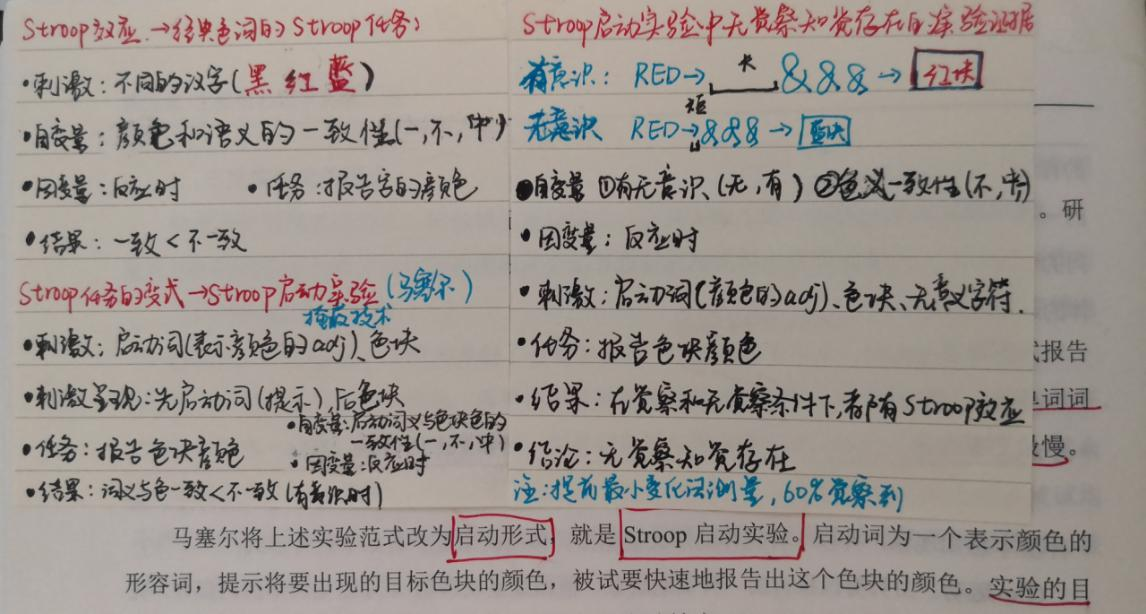 Stroop效应→经典色词的Stroop任务:
•刺激:不同的汉字(黑 红 蓝)
•自变量:颜色和语义的一致性(一,不,中)
•因变量:反应时 •任务:报告字的颜色
•结果:一致<不一致
Stroop任务的变式→Stroop启动实验(马塞尔)
掩蔽技术
•刺激:启动词(表示颜色的adj)、色块
•刺激呈现:先启动词(提示)后色块
•自变量:启动词义与色块色的
一致性(一,不,中)
•任务:报告色块颜色
•因变量:反应时
•结果:词义与色一致<不一致(有意识时)
Stroop启动实验中无觉察知觉存在的实验证据
有意识: RED→ 长 &&& → 红块
短
无意识 RED→&&& → 蓝块
•自变量 ①有无意识(无,有) ②色义一致性(不,中)
•因变量:反应时
•刺激:启动词(颜色的adj)、色块、无意义字符.
•任务:报告色块颜色
•结果:在觉察和无觉察条件下,都有Stroop效应
•结论:无觉察知觉存在
注:提前最小变化法测量,60%觉察到
。研
报告
词词
慢。
马塞尔将上述实验范式改为启动形式,就是 Stroop 启动实验。启动词为一个表示颜色的
形容词,提示将要出现的目标色块的颜色,被试要快速地报告出这个色块的颜色。实验的目